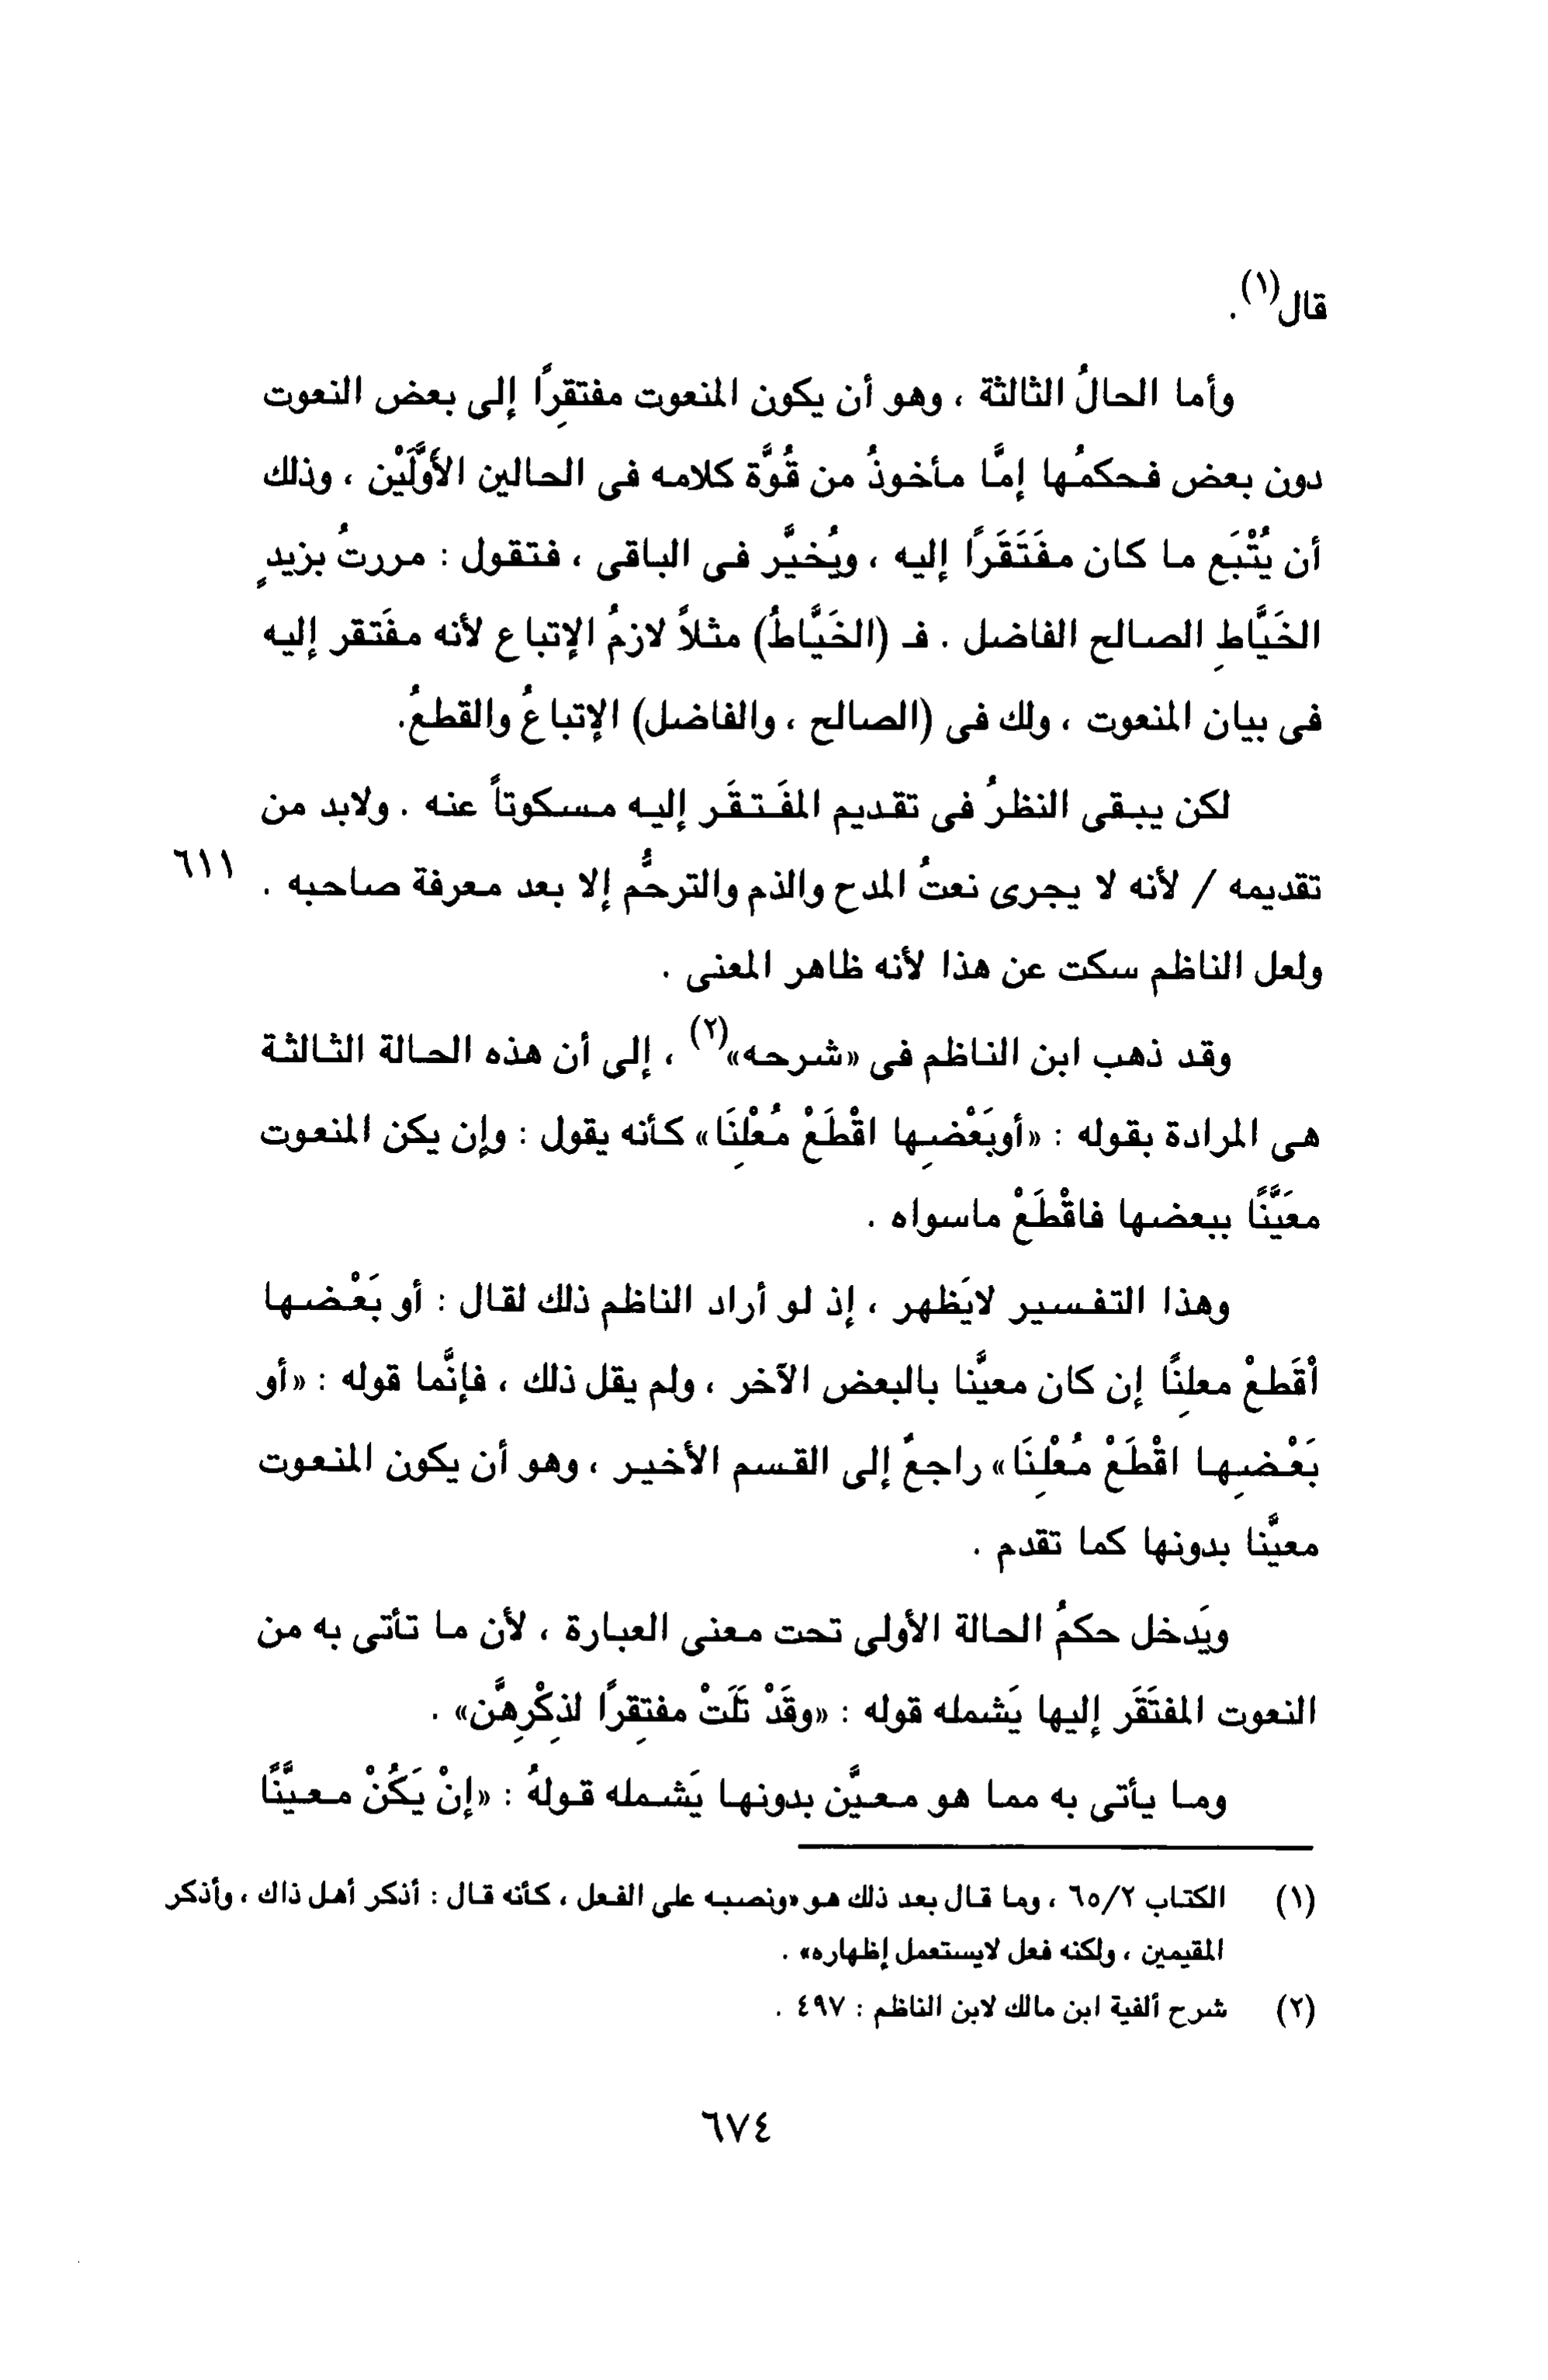 قال(١) .
وأما الحالُ الثالثة ، وهو أن يكون المنعوت مفتقِرًا إلى بعض النعوت
دون بعض فحكمُها إمَّا مأخوذُ من قُوَّة كلامه فى الحالين الأَوَّلَيْن ، وذلك
أن يُتْبَع ما كان مفتَقَرًا إليه ، ويُخيَّر فى الباقى ، فتقول : مررتُ بزيدٍ
الخَيَّاطِ الصالح الفاضل . فـ (الخَيَّاطُ) مثلاً لازمُ الإتباع لأنه مفتَقر إليه
فى بيان المنعوت ، ولك فى (الصالح ، والفاضل) الإتباعُ والقطعُ.
لكن يبقى النظرُ فى تقديم المفَتقَر إليه مسكوتاً عنه . ولابد من
تقديمه / لأنه لا يجرى نعتُ المدح والذم والترحُّم إلا بعد معرفة صاحبه . ٦١١
ولعل الناظم سكت عن هذا لأنه ظاهر المعنى .
وقد ذهب ابن الناظم فى «شرحه»(٢) ، إلى أن هذه الحالة الثالثة
هى المرادة بقوله : «أوبَعْضِها اقْطَعْ مُعْلِنَا» كأنه يقول : وإن يكن المنعوت
معَيَّنًا ببعضها فاقْطَعْ ماسواه .
وهذا التفسير لايَظهر ، إذ لو أراد الناظم ذلك لقال : أو بَعْضها
أقَطعْ معلِنًا إن كان معيَّنا بالبعض الآخر ، ولم يقل ذلك ، فإنَّما قوله : «أو
بَعْضِها اقْطَعْ مُعْلِنَا» راجعٌ إلى القسم الأخير ، وهو أن يكون المنعوت
معيَّنا بدونها كما تقدم .
ويَدخل حكمُ الحالة الأولى تحت معنى العبارة ، لأن ما تأتى به من
النعوت المفتَقَر إليها يَشمله قوله : «وقَدْ تَلَتْ مفتقِرًا لذِكْرِهنَّ» .
وما يأتى به مما هو معيَّن بدونها يَشمله قولهُ : «إنْ يَكُنْ معيَّنًا
(١) الكتاب ٦٥/٢ ، وما قال بعد ذلك هو «ونصبه على الفعل ، كأنه قال : أذكر أهل ذاك ، وأذكر
المقيمين ، ولكنه فعل لايستعمل إظهاره» .
(٢) شرح ألفية ابن مالك لابن الناظم : ٤٩٧ .
٦٧٤